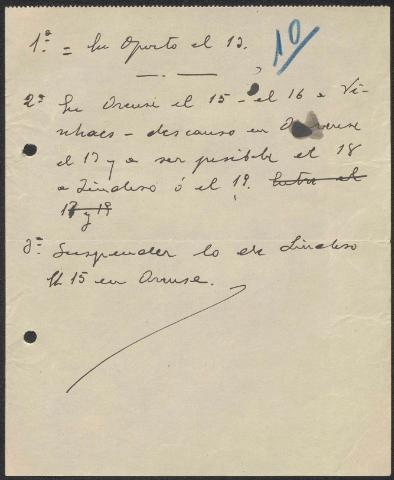 1ª = En Oporto el 13.
10
2ª En Orense el 15 - el 16 a Vi-
- descanso en Orense
el 17 y a ser posible el 18
a Lindoso ó el 19. Entre el
17 y 19
3ª Suspender lo de Lindoso
El 15 en Orense.